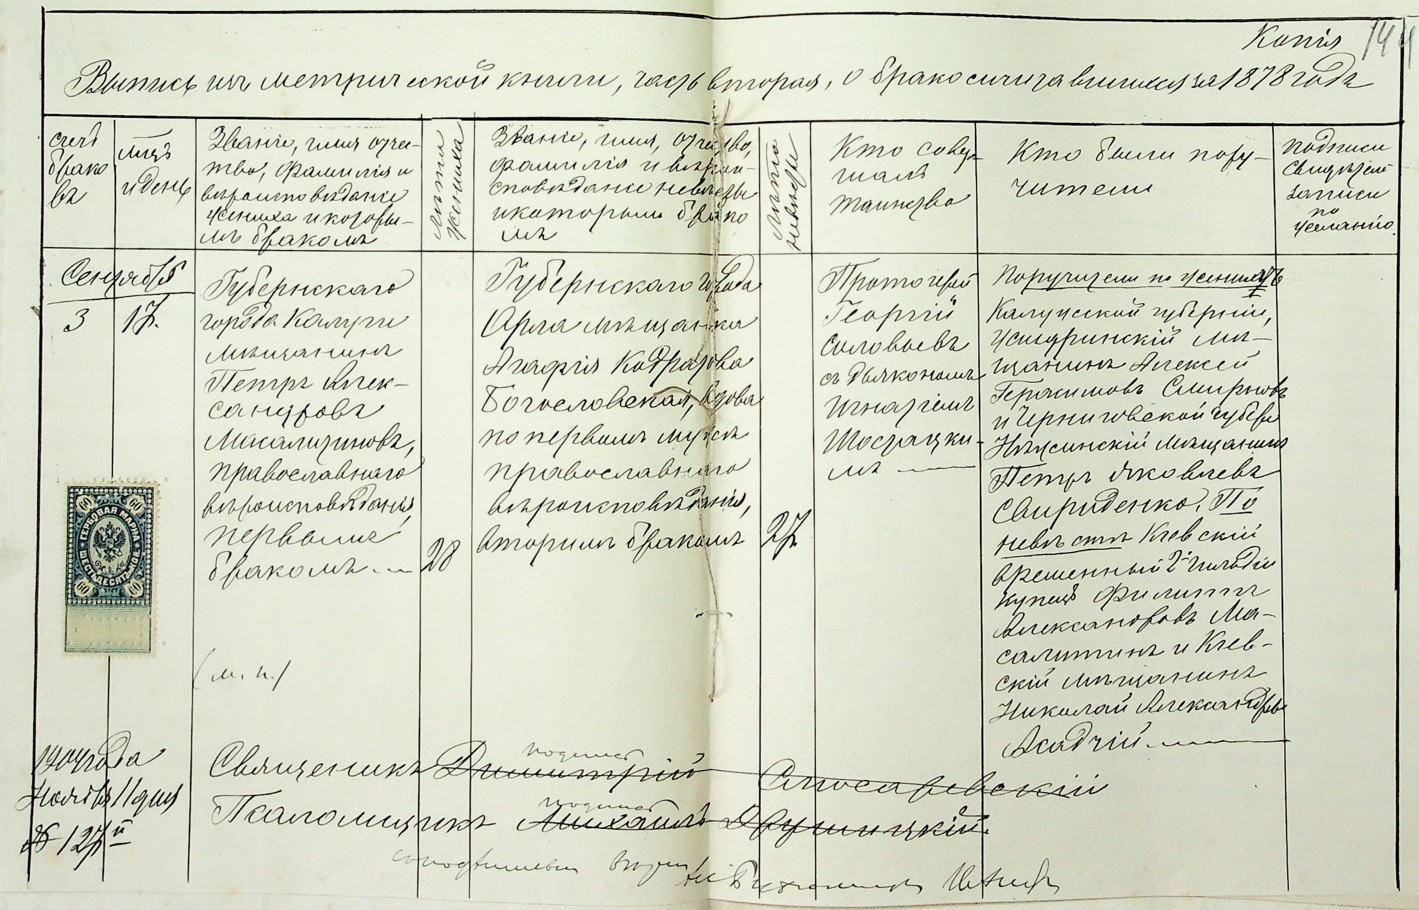 Копія
144
Выпись изъ метрической книги, часть вторая, о бракосочетавшихся за 1878 годъ
счетъ
брако
въ
мѣсяцъ
и день
Званіе, имя, отче-
тво, фамилія и
вѣроисповѣданіе
жениха и которы-
мъ бракомъ
Лѣта
жениха
Званіе, имя, отчество,
фамилія и вѣрои-
сповѣданіе невѣсты
и которымъ брако
мъ
Лѣта
невѣсты
Кто совер-
шалъ
таинство
Кто были пору-
чители
Подписи
свидѣтелей
записи
по
желанію.
Сентябрь
3
17.
Губернскаго
города Калуги
мѣщанинъ
Петръ Алек-
сандровъ
Масалитиновъ,
православнаго
вѣроисповѣданія,
первымъ
бракомъ
28
Губернскаго города
Орла мѣщанка
Агафія Кодратова
Богословская, вдова
по первомъ мужѣ
православнаго
вѣроисповѣданія,
вторымъ бракомъ
27
Протоіерей
Георгій
Соловьевъ
съ дьякономъ
Игнатіемъ
Шостацки-
мъ
Поручители по женихѣ
Калужской губерніи,
Жиздринскій мѣ-
щанинъ Алексѣй
Герасимовъ Смирновъ
и Черниговской губерн
Нѣжинскій мѣщанинъ
Петръ Яковлевъ
Свириденко. По
невѣстѣ Кіевскій
временный 2й гильдіи
купецъ Филиппъ
Александровъ Ма-
салитинъ и Кіев-
скій мѣщанинъ
Николай Александровъ
Асадчій
60
60
ГЕРБОВАЯ МАРКА
ШЕСТЬДЕСЯТЪ КОП.
60
60
(м. п.)
1904 года
Ноября 11 дня
№ 127й
подписа
Священикъ Димитрій Слюсаревскій
подписа
Псаломщикъ Михаилъ Друшицкій.